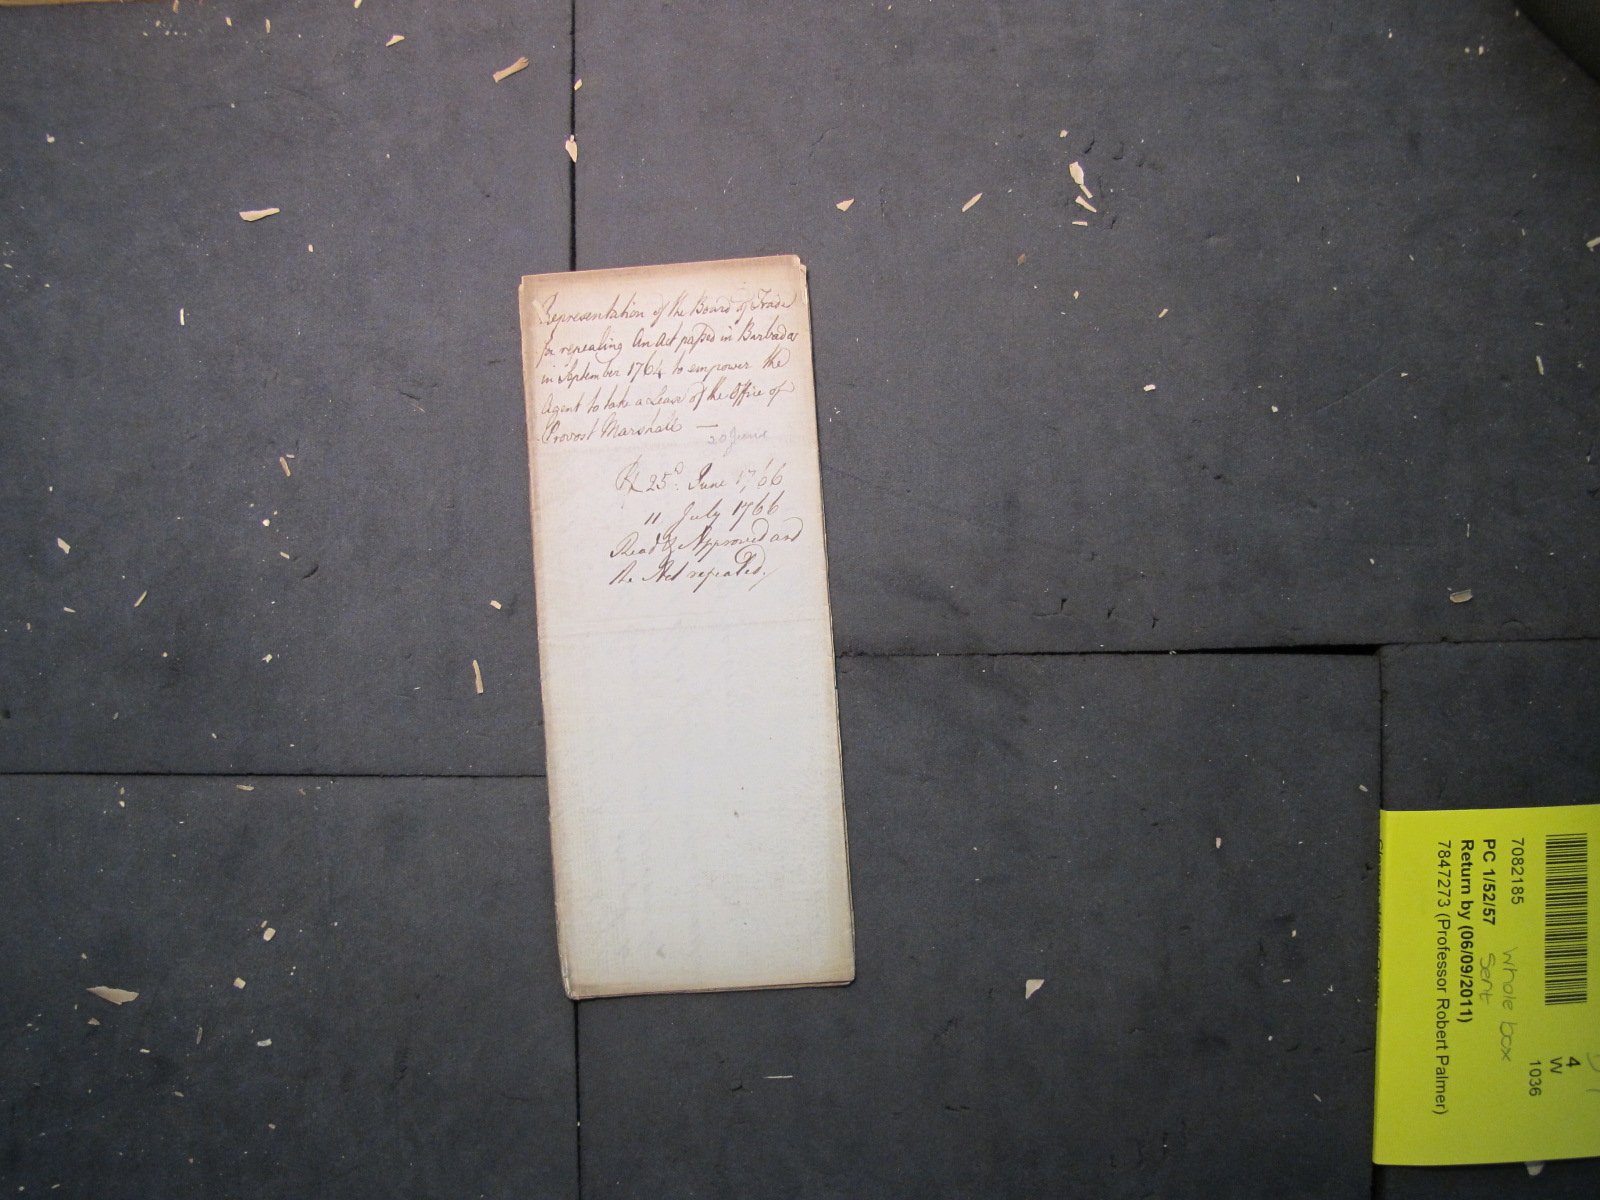 Representation of the Board of Trade
for repealing An Act passed in Barbados
in September 1764 to empower the
Agent to take a Lease of the Office of
Provost Marshall —
20 June
R 25.d June 1766
11 July 1766
Read & Approved and
the Act repealed.
7082185
PC 1/52/57
Return by (06/09/2011)
7847273 (Professor Robert Palmer)
whole box
sent
4
W
1036